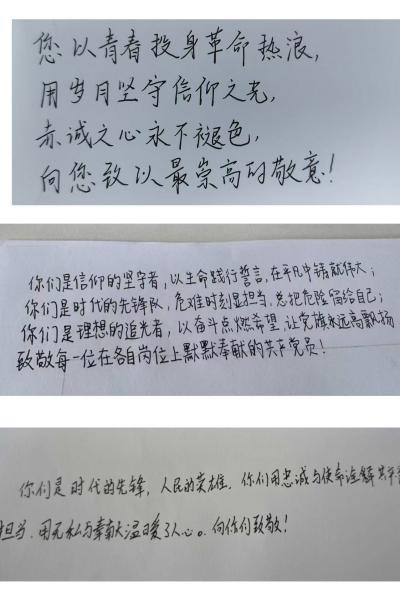 您以青春投身革命热浪，
用岁月坚守信仰之光，
赤诚之心永不褪色，
向您致以最崇高的敬意！
你们是信仰的坚守者，以生命践行誓言，在平凡中铸就伟大；
你们是时代的先锋队，危难时刻显担当，总把危险留给自己；
你们是理想的追光者，以奋斗点燃希望，让党旗永远高飘扬
致敬每一位在各自岗位上默默奉献的共产党员！
你们是时代的先锋，人民的英雄．你们用忠诚与使命诠释共产
担当．用无私与奉献温暖了人心。向你们致敬！